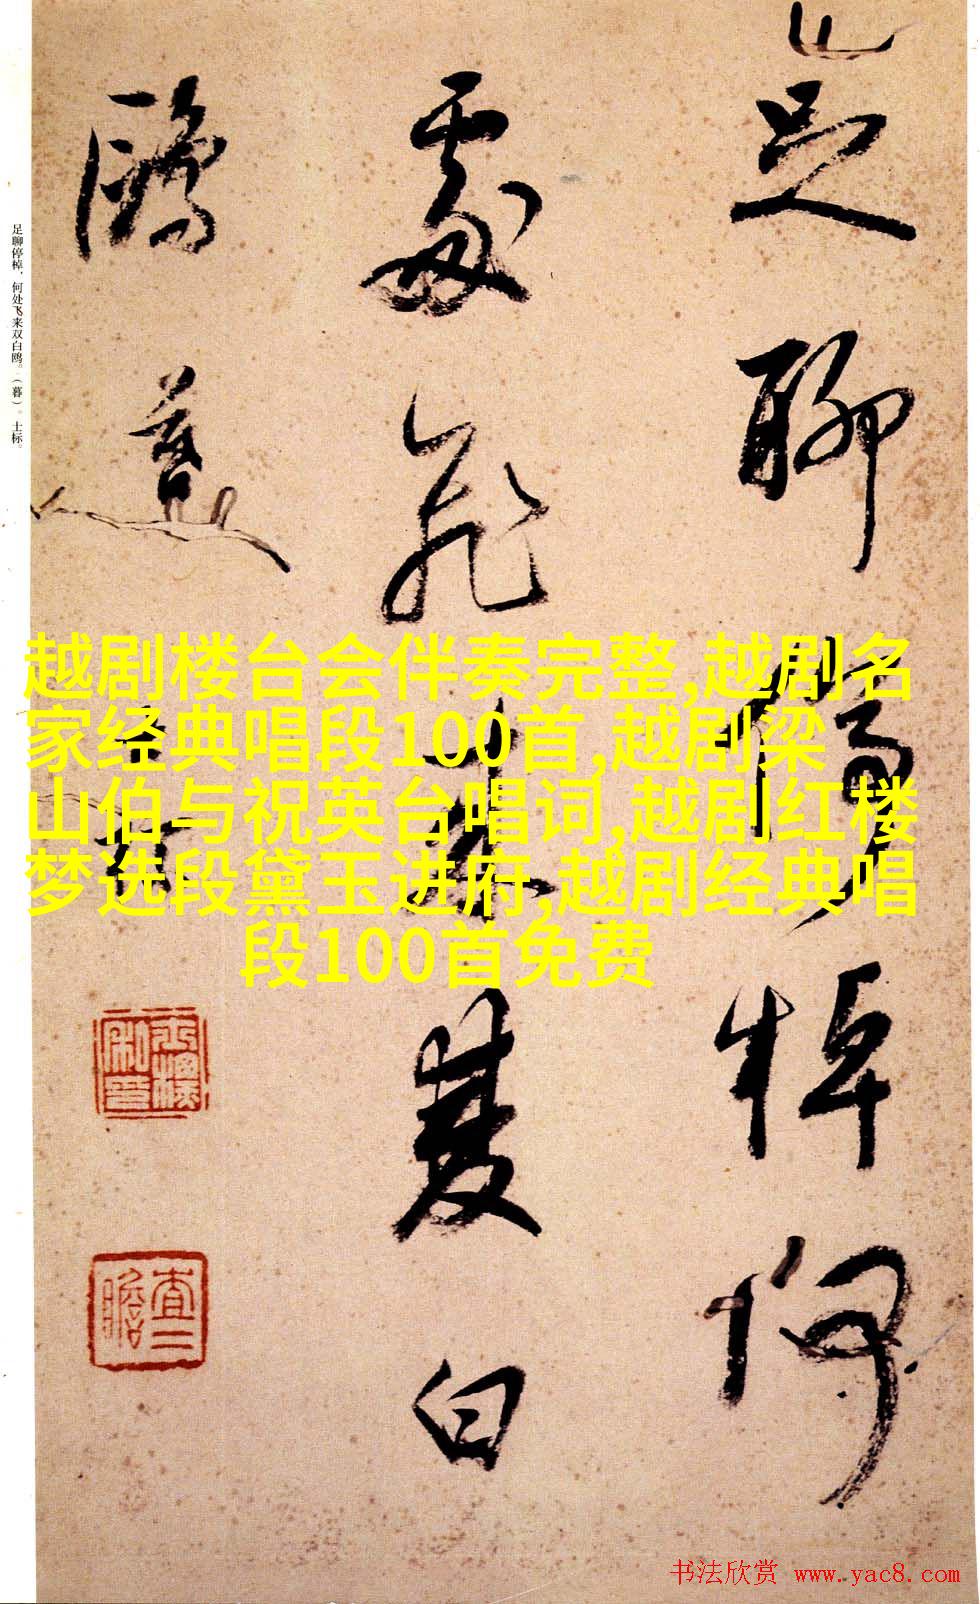 足聊停棹何
處飛來雙白
鷗 暮
士标
足聊停棹，何处飞来双白鸥。（暮）。士标。
越剧楼台会伴奏完整,越剧名
家经典唱段100首,越剧梁
山伯与祝英台唱词,越剧红楼
梦选段黛玉进府,越剧经典唱
段100首免费
查二
瞻
书法欣赏 www.yac8.com